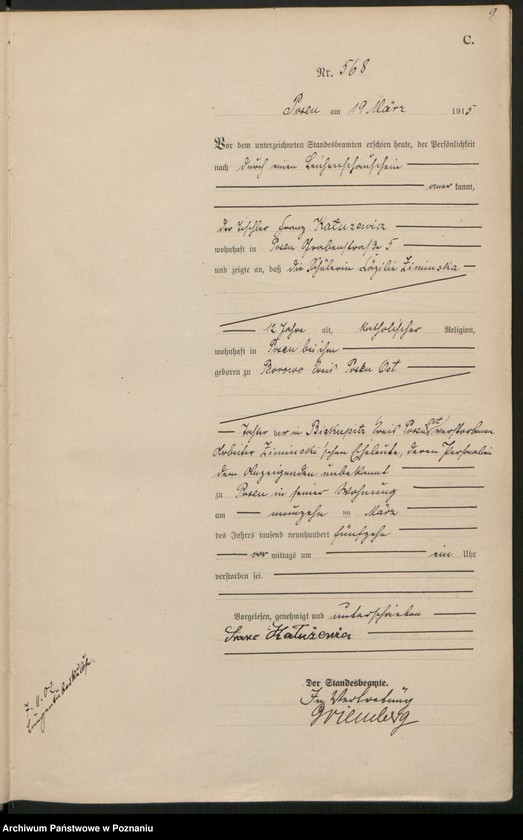 9
C.
Nr. 568
Posen am 19 März 1915
Vor dem unterzeichneten Standesbeamten erschien heute, der Persönlichkeit
nach durch einen Leichenschauschein
aner kannt,
der Tischler Franz Katuzewicz
wohnhaft in Posen Grabenstraße 5
und zeigte an, daß die Schülerin Cäzilie Ziminska
12 Jahre alt, katholischer Religion,
wohnhaft in Posen bei ihm
geboren zu Borowo Kreis Posen Ost
Tochter der in Biskupitz Kreis Posen Ost verstorbenen
Arbeiter Ziminski'schen Eheleute, deren Personalien
dem Anzeigenden unbekannt
zu Posen in seiner Wohnung
am neunzehn ten März
des Jahres tausend neunhundert fünfzehn
vor mittags um ein Uhr
verstorben sei.
Vorgelesen, genehmigt und unterschrieben
Franz Katużewicz
Der Standesbeamte.
In Vertretung
7. 11. 02
Archiwum Państwowe w Poznaniu